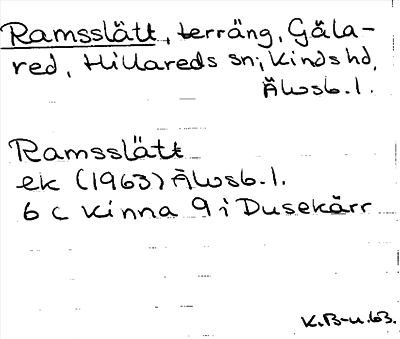 Ramsslätt, terräng, Gåla-
red, Hillareds sn, Kinds hd,
Älvsb. l.
Ramsslätt
ek (1963) Älvsb. l.
6 c Kinna 9 i Dusekärr
K.B-u.63.